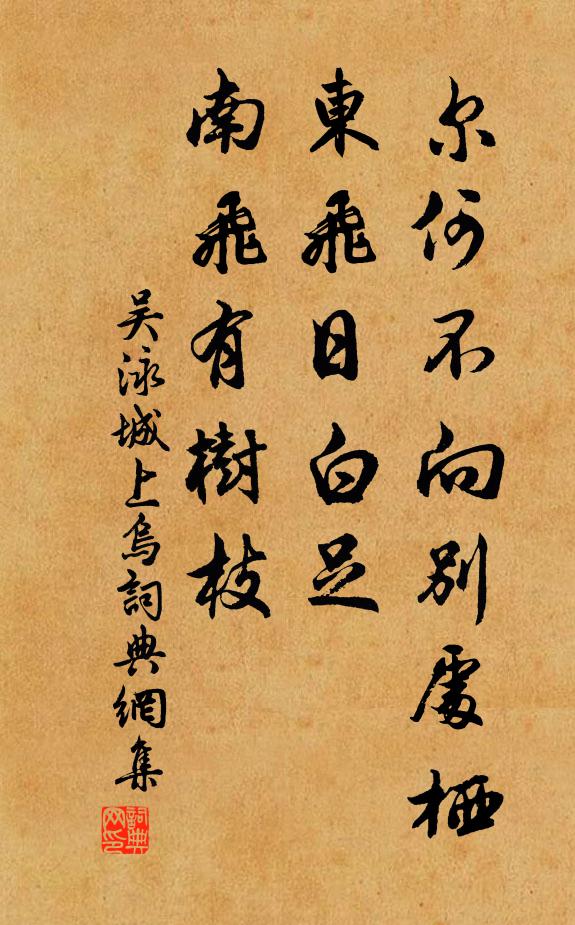 尔何不向別處栖
東飛日白足
南飛有樹枝
吴泳城上烏詞典網集
詞典網印